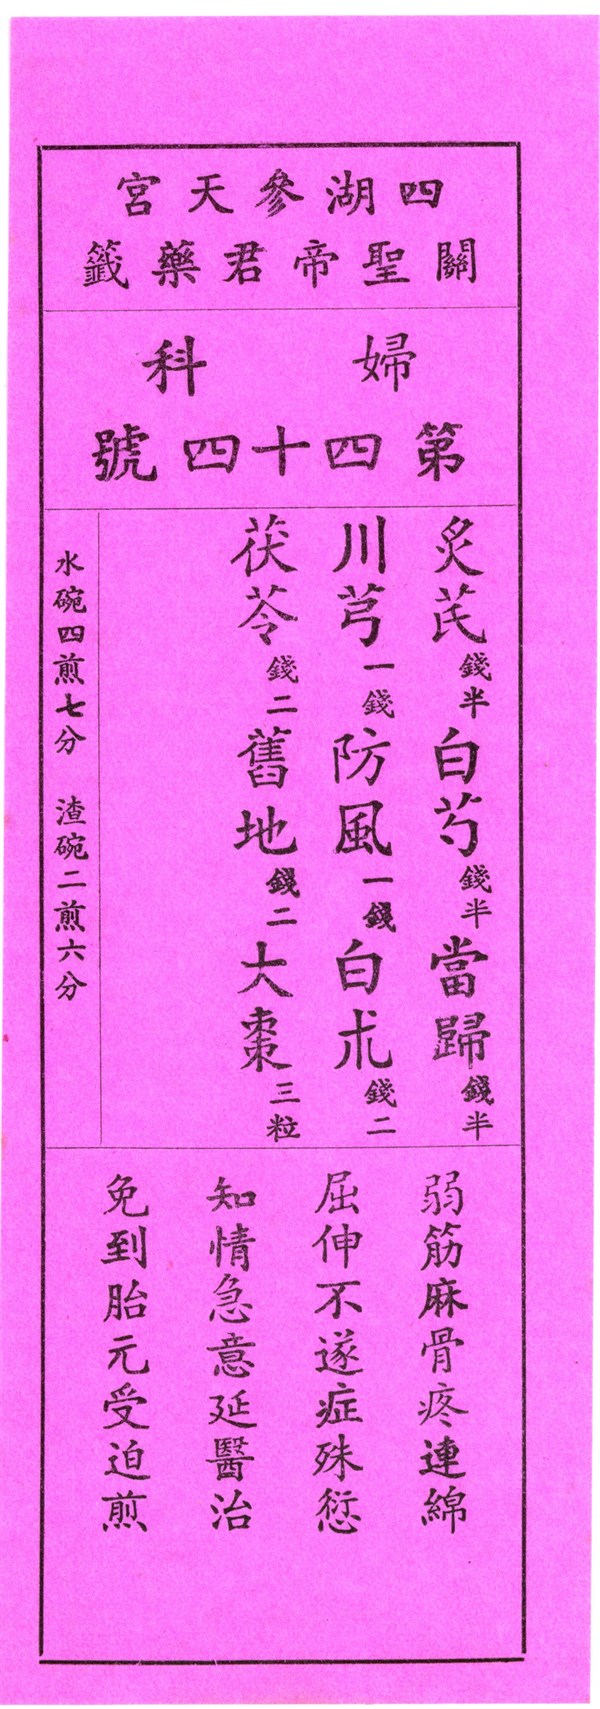 四湖參天宮
關聖帝君藥籤
婦科
第四十四號
炙芪錢半白芍錢半當歸錢半
川芎一錢防風一錢白朮錢二
茯苓錢二舊地錢二大棗三粒
水碗四煎七分 渣碗二煎六分
弱筋麻骨疼連綿
屈伸不遂症殊愆
知情急意延醫治
免到胎元受迫煎